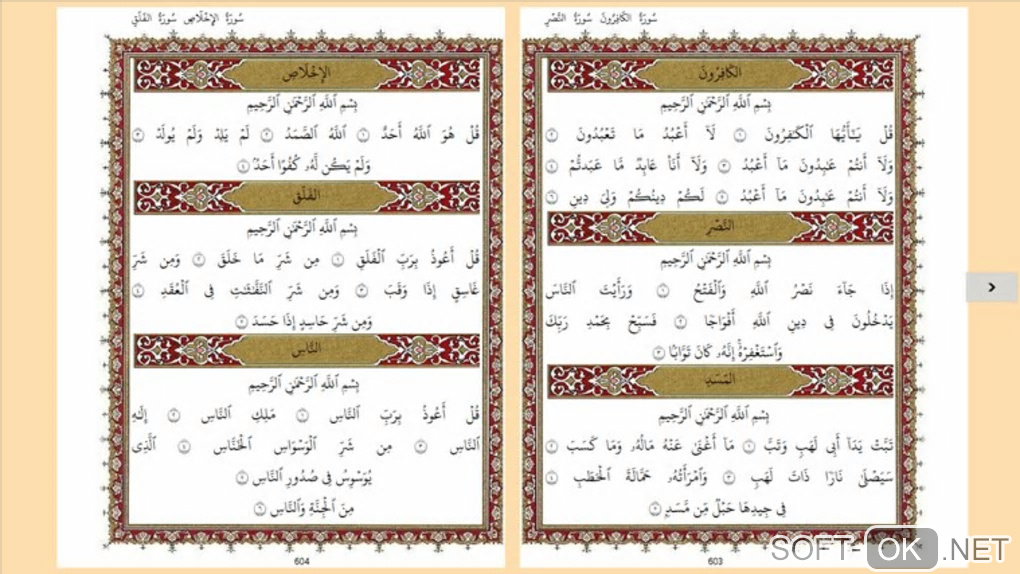 سُورَةُ الكَافِرُونَ سُورَةُ النَّصْرِ
الكَافِرُونَ
بِسْمِ ٱللَّهِ ٱلرَّحْمَٰنِ ٱلرَّحِيمِ
قُلْ يَـٰٓأَيُّهَا ٱلْكَـٰفِرُونَ ١ لَآ أَعْبُدُ مَا تَعْبُدُونَ ٢
وَلَآ أَنتُمْ عَـٰبِدُونَ مَآ أَعْبُدُ ٣ وَلَآ أَنَا۠ عَابِدٌ مَّا عَبَدتُّمْ ٤
وَلَآ أَنتُمْ عَـٰبِدُونَ مَآ أَعْبُدُ ٥ لَكُمْ دِينُكُمْ وَلِىَ دِينِ ٦
النَّصْرِ
بِسْمِ ٱللَّهِ ٱلرَّحْمَٰنِ ٱلرَّحِيمِ
إِذَا جَآءَ نَصْرُ ٱللَّهِ وَٱلْفَتْحُ ١ وَرَأَيْتَ ٱلنَّاسَ
يَدْخُلُونَ فِى دِينِ ٱللَّهِ أَفْوَاجًا ٢ فَسَبِّحْ بِحَمْدِ رَبِّكَ
وَٱسْتَغْفِرْهُ ۚ إِنَّهُۥ كَانَ تَوَّابًۢا ٣
المَسَدِ
بِسْمِ ٱللَّهِ ٱلرَّحْمَٰنِ ٱلرَّحِيمِ
تَبَّتْ يَدَآ أَبِى لَهَبٍ وَتَبَّ ١ مَآ أَغْنَىٰ عَنْهُ مَالُهُۥ وَمَا كَسَبَ ٢
سَيَصْلَىٰ نَارًا ذَاتَ لَهَبٍ ٣ وَٱمْرَأَتُهُۥ حَمَّالَةَ ٱلْحَطَبِ ٤
فِى جِيدِهَا حَبْلٌ مِّن مَّسَدٍۭ ٥
603
سُورَةُ الإِخْلَاصِ سُورَةُ الفَلَقِ
الإِخْلَاصِ
بِسْمِ ٱللَّهِ ٱلرَّحْمَٰنِ ٱلرَّحِيمِ
قُلْ هُوَ ٱللَّهُ أَحَدٌ ١ ٱللَّهُ ٱلصَّمَدُ ٢ لَمْ يَلِدْ وَلَمْ يُولَدْ ٣
وَلَمْ يَكُن لَّهُۥ كُفُوًا أَحَدٌۢ ٤
الفَلَقِ
بِسْمِ ٱللَّهِ ٱلرَّحْمَٰنِ ٱلرَّحِيمِ
قُلْ أَعُوذُ بِرَبِّ ٱلْفَلَقِ ١ مِن شَرِّ مَا خَلَقَ ٢ وَمِن شَرِّ
غَاسِقٍ إِذَا وَقَبَ ٣ وَمِن شَرِّ ٱلنَّفَّـٰثَـٰتِ فِى ٱلْعُقَدِ ٤
وَمِن شَرِّ حَاسِدٍ إِذَا حَسَدَ ٥
النَّاسِ
بِسْمِ ٱللَّهِ ٱلرَّحْمَٰنِ ٱلرَّحِيمِ
قُلْ أَعُوذُ بِرَبِّ ٱلنَّاسِ ١ مَلِكِ ٱلنَّاسِ ٢ إِلَـٰهِ
ٱلنَّاسِ ٣ مِن شَرِّ ٱلْوَسْوَاسِ ٱلْخَنَّاسِ ٤ ٱلَّذِى
يُوَسْوِسُ فِى صُدُورِ ٱلنَّاسِ ٥
مِنَ ٱلْجِنَّةِ وَٱلنَّاسِ ٦
604
SOFT-OK.NET